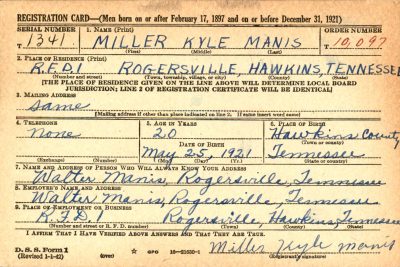 REGISTRATION CARD—(Men born on or after February 17, 1897 and on or before December 31, 1921)
SERIAL NUMBER 1. NAME (Print) ORDER NUMBER
T 1341 MILLER KYLE MANIS T 10,097
(First) (Middle) (Last)
2. PLACE OF RESIDENCE (Print)
R.F.D.1 ROGERSVILLE, HAWKINS, TENNESSEE
(Number and street) (Town, township, village, or city) (County) (State)
[THE PLACE OF RESIDENCE GIVEN ON THE LINE ABOVE WILL DETERMINE LOCAL BOARD
JURISDICTION; LINE 2 OF REGISTRATION CERTIFICATE WILL BE IDENTICAL]
3. MAILING ADDRESS
Same
[Mailing address if other than place indicated on line 2. If same insert word same]
4. TELEPHONE 5. AGE IN YEARS 6. PLACE OF BIRTH
None 20 Hawkins County
DATE OF BIRTH (Town or county)
May 25, 1921 Tennessee
(Exchange) (Number) (Mo.) (Day) (Yr.) (State or country)
7. NAME AND ADDRESS OF PERSON WHO WILL ALWAYS KNOW YOUR ADDRESS
Walter Manis, Rogersville, Tennessee
8. EMPLOYER'S NAME AND ADDRESS
Walter Manis, Rogersville, Tennessee
9. PLACE OF EMPLOYMENT OR BUSINESS
R.F.D.1 Rogersville, Hawkins, Tennessee
(Number and street or R. F. D. number) (Town) (County) (State)
I AFFIRM THAT I HAVE VERIFIED ABOVE ANSWERS AND THAT THEY ARE TRUE.
D. S. S. Form 1 Miller Kyle Manis
(Revised 1-1-42) (over) GPO 16—21630-1 (Registrant's signature)